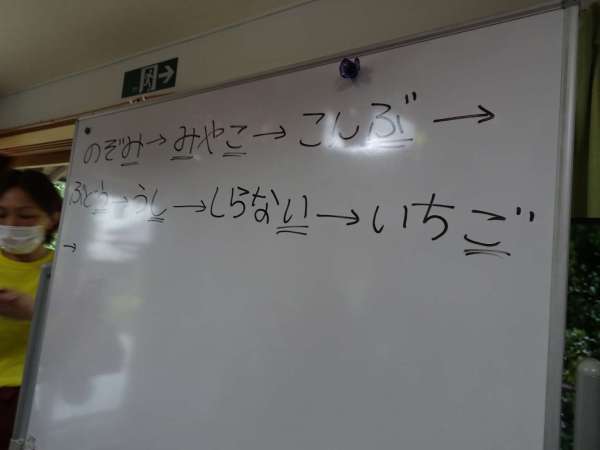 のぞみ→みやこ→こんぶ→
ぶどう→うし→しらない→いちご
→